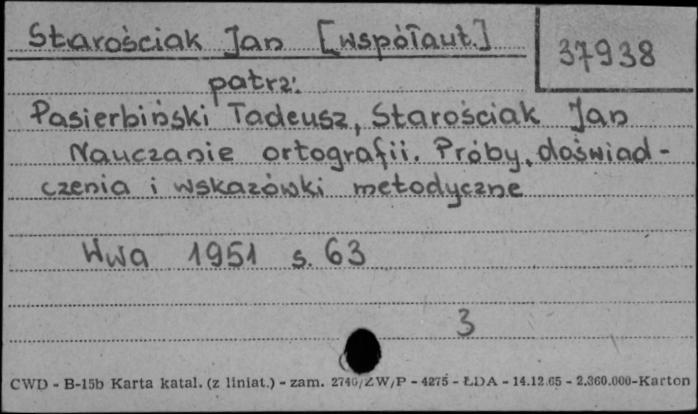 Starościak Jan [współaut.]
37938
patrz:
Pasierbiński Tadeusz, Starościak Jan
Nauczanie ortografii. Próby, doświad-
czenia i wskazówki metodyczne
Wwa 1951 s. 63
3
CWD - B-15b Karta katal. (z liniat.) - zam. 2740/ZW/P - 4275 - ŁDA - 14.12.65 - 2.360.000-Karton